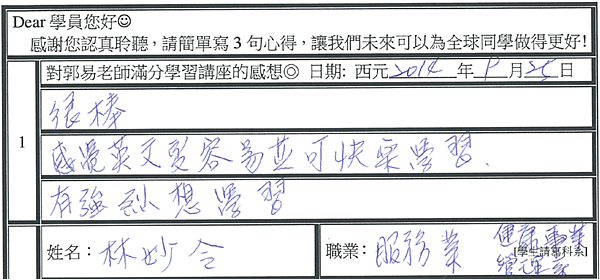 Dear 學員您好☺
感謝您認真聆聽，請簡單寫 3 句心得，讓我們未來可以為全球同學做得更好!
對郭易老師滿分學習講座的感想◎ 日期: 西元 2014 年 9 月 25 日
1
很棒
感覺英文更容易並可快樂學習.
有強烈想學習
姓名： 林妙令
職業： 服務業 健康事業
[學生請寫科系]
管理系